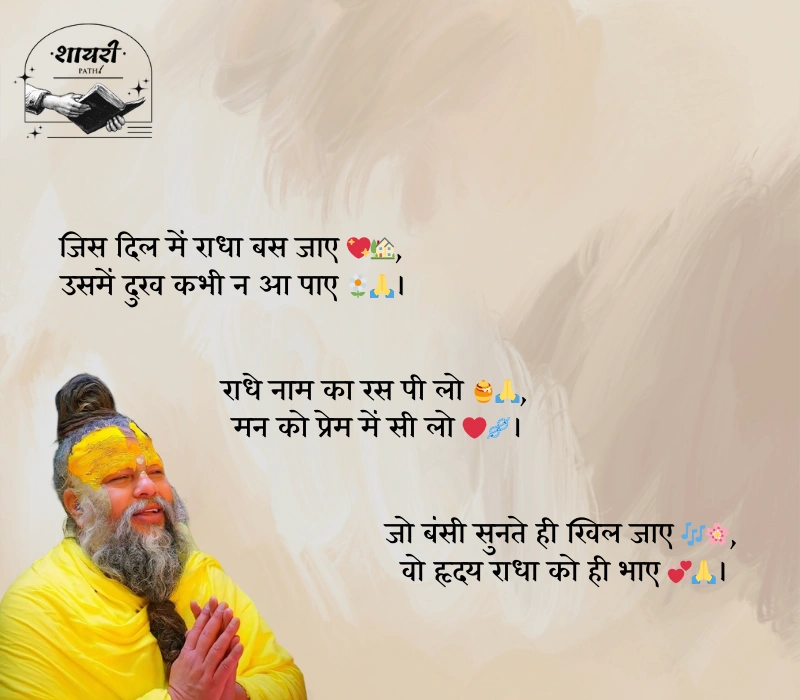 शायरी
PATH
जिस दिल में राधा बस जाए 💖🏡,
उसमें दुख कभी न आ पाए 🌼🙏।
राधे नाम का रस पी लो 🍯🙏,
मन को प्रेम में सी लो ❤️🧬।
जो बंसी सुनते ही खिल जाए 🎶🌸,
वो हृदय राधा को ही भाए 💕🙏।